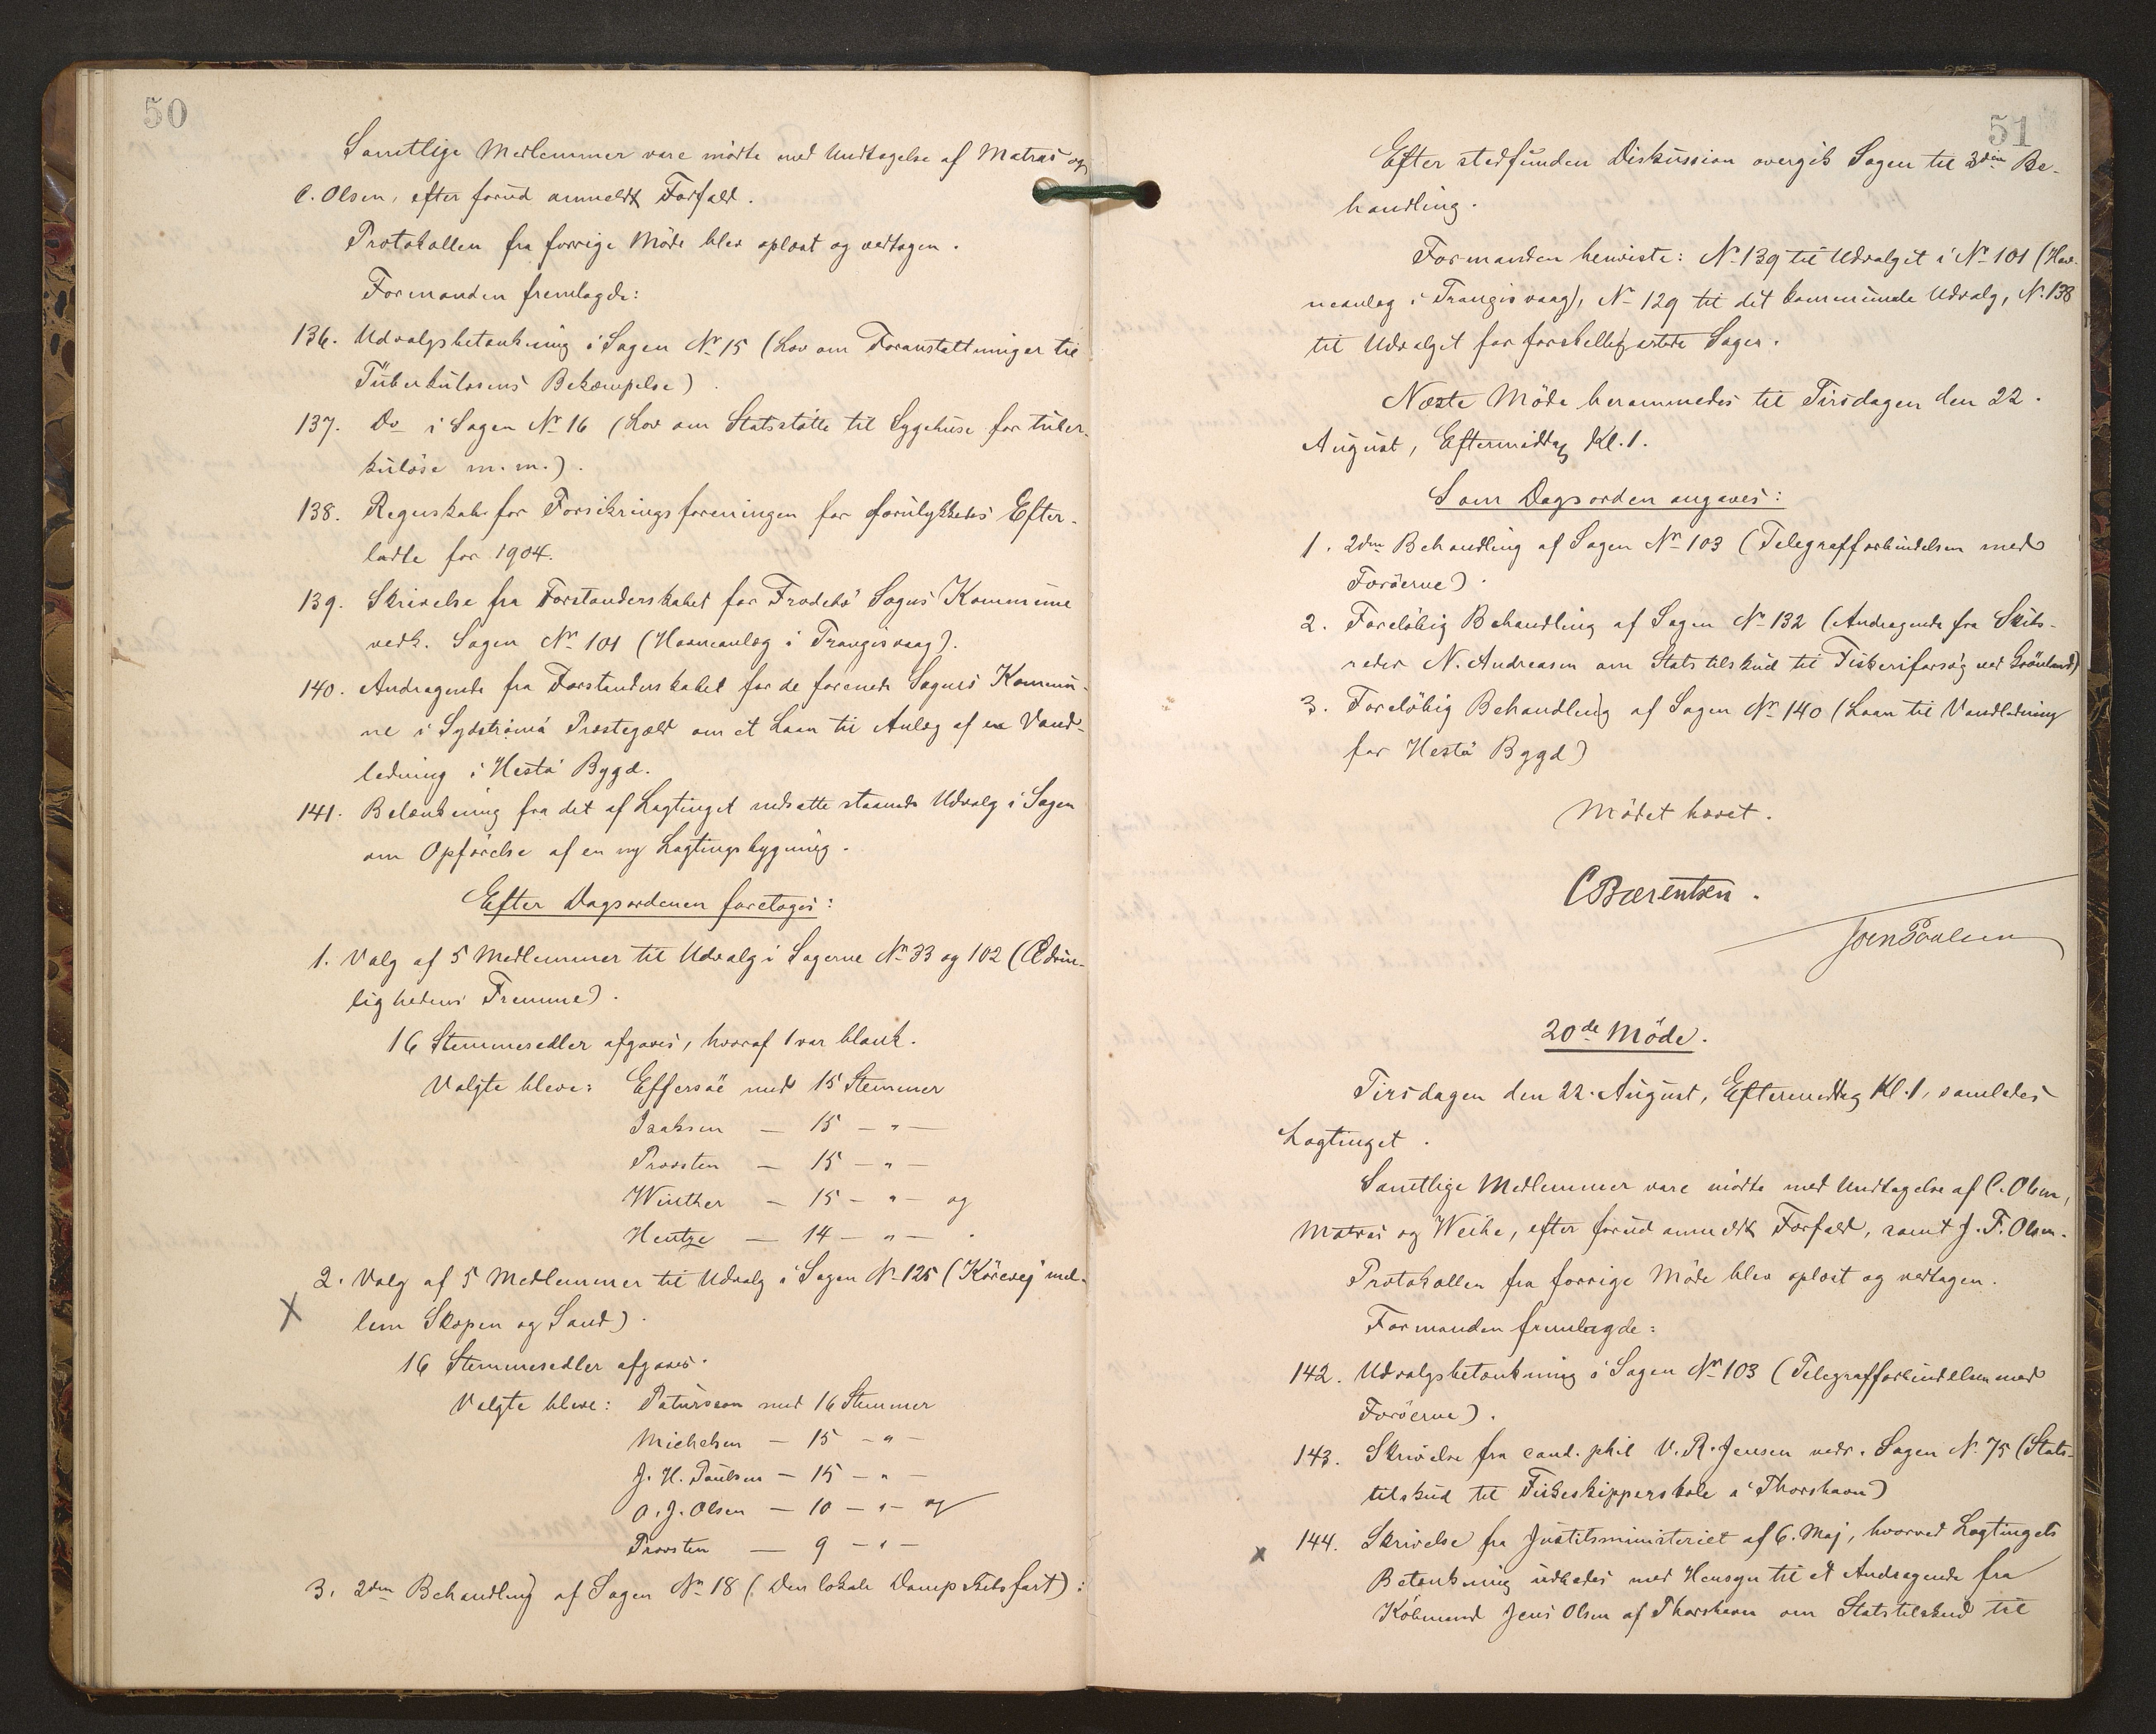 50
Samtlige Medlemmer vare mödte med Undtagelse af Matras og
C. Olsen, efter forud anmeldt Forfald.
Protokollen fra forrige Möde blev oplæst og vedtagen.
Formanden fremlagde:
136. Udvalgsbetænkning i Sagen Nr 15 (Lov om Foranstaltninger til
Tüberkulosens Bekæmpelse).
137. Do i Sagen Nr 16 (Lov om Statsstötte til Sygehuse for tüber-
kulöse m.m.).
138. Regnskab for Forsikringsforeningen for forulykkedes Efter-
ladte for 1904.
139. Skrivelse fra Forstanderskabet for Frodebö Sogns Kommune
vedk. Sagen Nr 101 (Havneanlæg i Trangisvaag).
140. Andragende fra Forstanderskabet for de forenede Sognes Kommu-
ne i Sydströmö Præstegæld om et Laan til Anlæg af en Vand-
ledning i Hestö Bygd.
141. Betænkning fra det af Lagtinget nedsatte staaende Udvalg i Sagen
om Opförelse af en ny Lagtingsbygning.
Efter Dagsordenen foretoges:
1. Valg af 5 Medlemmer til Udvalg i Sagerne Nr 33 og 102 (Ædru-
lighedens Fremme).
16 Stemmesedler afgaves, hvoraf 1 var blank.
Valgte bleve: Effersöe med 15 Stemmer
Isaksen — 15 — " —
Provsten — 15 — " —
Winther — 15 — " — og
Hentze — 14 — " — .
2. Valg af 5 Medlemmer til Udvalg i Sagen Nr 125 (Körevej mel-
X lem Skopen og Sand).
16 Stemmesedler afgaves.
Valgte bleve: Patursson med 16 Stemmer
Michelsen — 15 — " —
J. H. Poulsen — 15 — " —
O. J. Olsen — 10 — " — og
Provsten — 9 — " —
3. 2den Behandling af Sagen Nr 18 (Den lokale Dampskibsfart):
51
Efter stedfunden Diskussion overgik Sagen til 3die Be-
handling.
Formanden henviste: Nr 139 til Udvalget i Nr 101 (Hav-
neanlæg i Trangisvaag), Nr 129 til det kommunale Udvalg, Nr. 138
til Udvalget for forskelligartede Sager.
Næste Möde berammedes til Tirsdagen den 22.
August, Eftermiddag Kl. 1.
Som Dagsorden angaves:
1. 2den Behandling af Sagen Nr 103 (Telegrafforbindelsen med
Færöerne).
2. Forelöbig Behandling af Sagen Nr 132 (Andragende fra Skibs-
reder N. Andreasen om Statstilskud til Fiskeriforsög ved Grönland)
3. Forelöbig Behandling af Sagen Nr 140 (Laan til Vandledning
for Hestö Bygd)
Mödet hævet.
C Bærentsen.
Joen Poulsen
20de Möde.
Tirsdagen den 22. August, Eftermiddag Kl. 1, samledes
Lagtinget.
Samtlige Medlemmer vare mödte med Undtagelse af C. Olsen,
Matras og Weihe, efter forud anmeldt Forfald, samt J. F. Olsen.
Protokollen fra forrige Möde blev oplæst og vedtagen.
Formanden fremlagde:
142. Udvalgsbetænkning i Sagen Nr 103 (Telegrafforbindelsen med
Færöerne).
143. Skrivelse fra cand. phil V. R. Jensen vedr. Sagen Nr. 75 (Stats-
tilskud til Fiskeskipperskole i Thorshavn)
x 144. Skrivelse fra Justitsministeriet af 6. Maj, hvorved Lagtingets
Betænkning udbedes med Hensyn til et Andragende fra
Köbmand Jens Olsen af Thorshavn om Statstilskud til